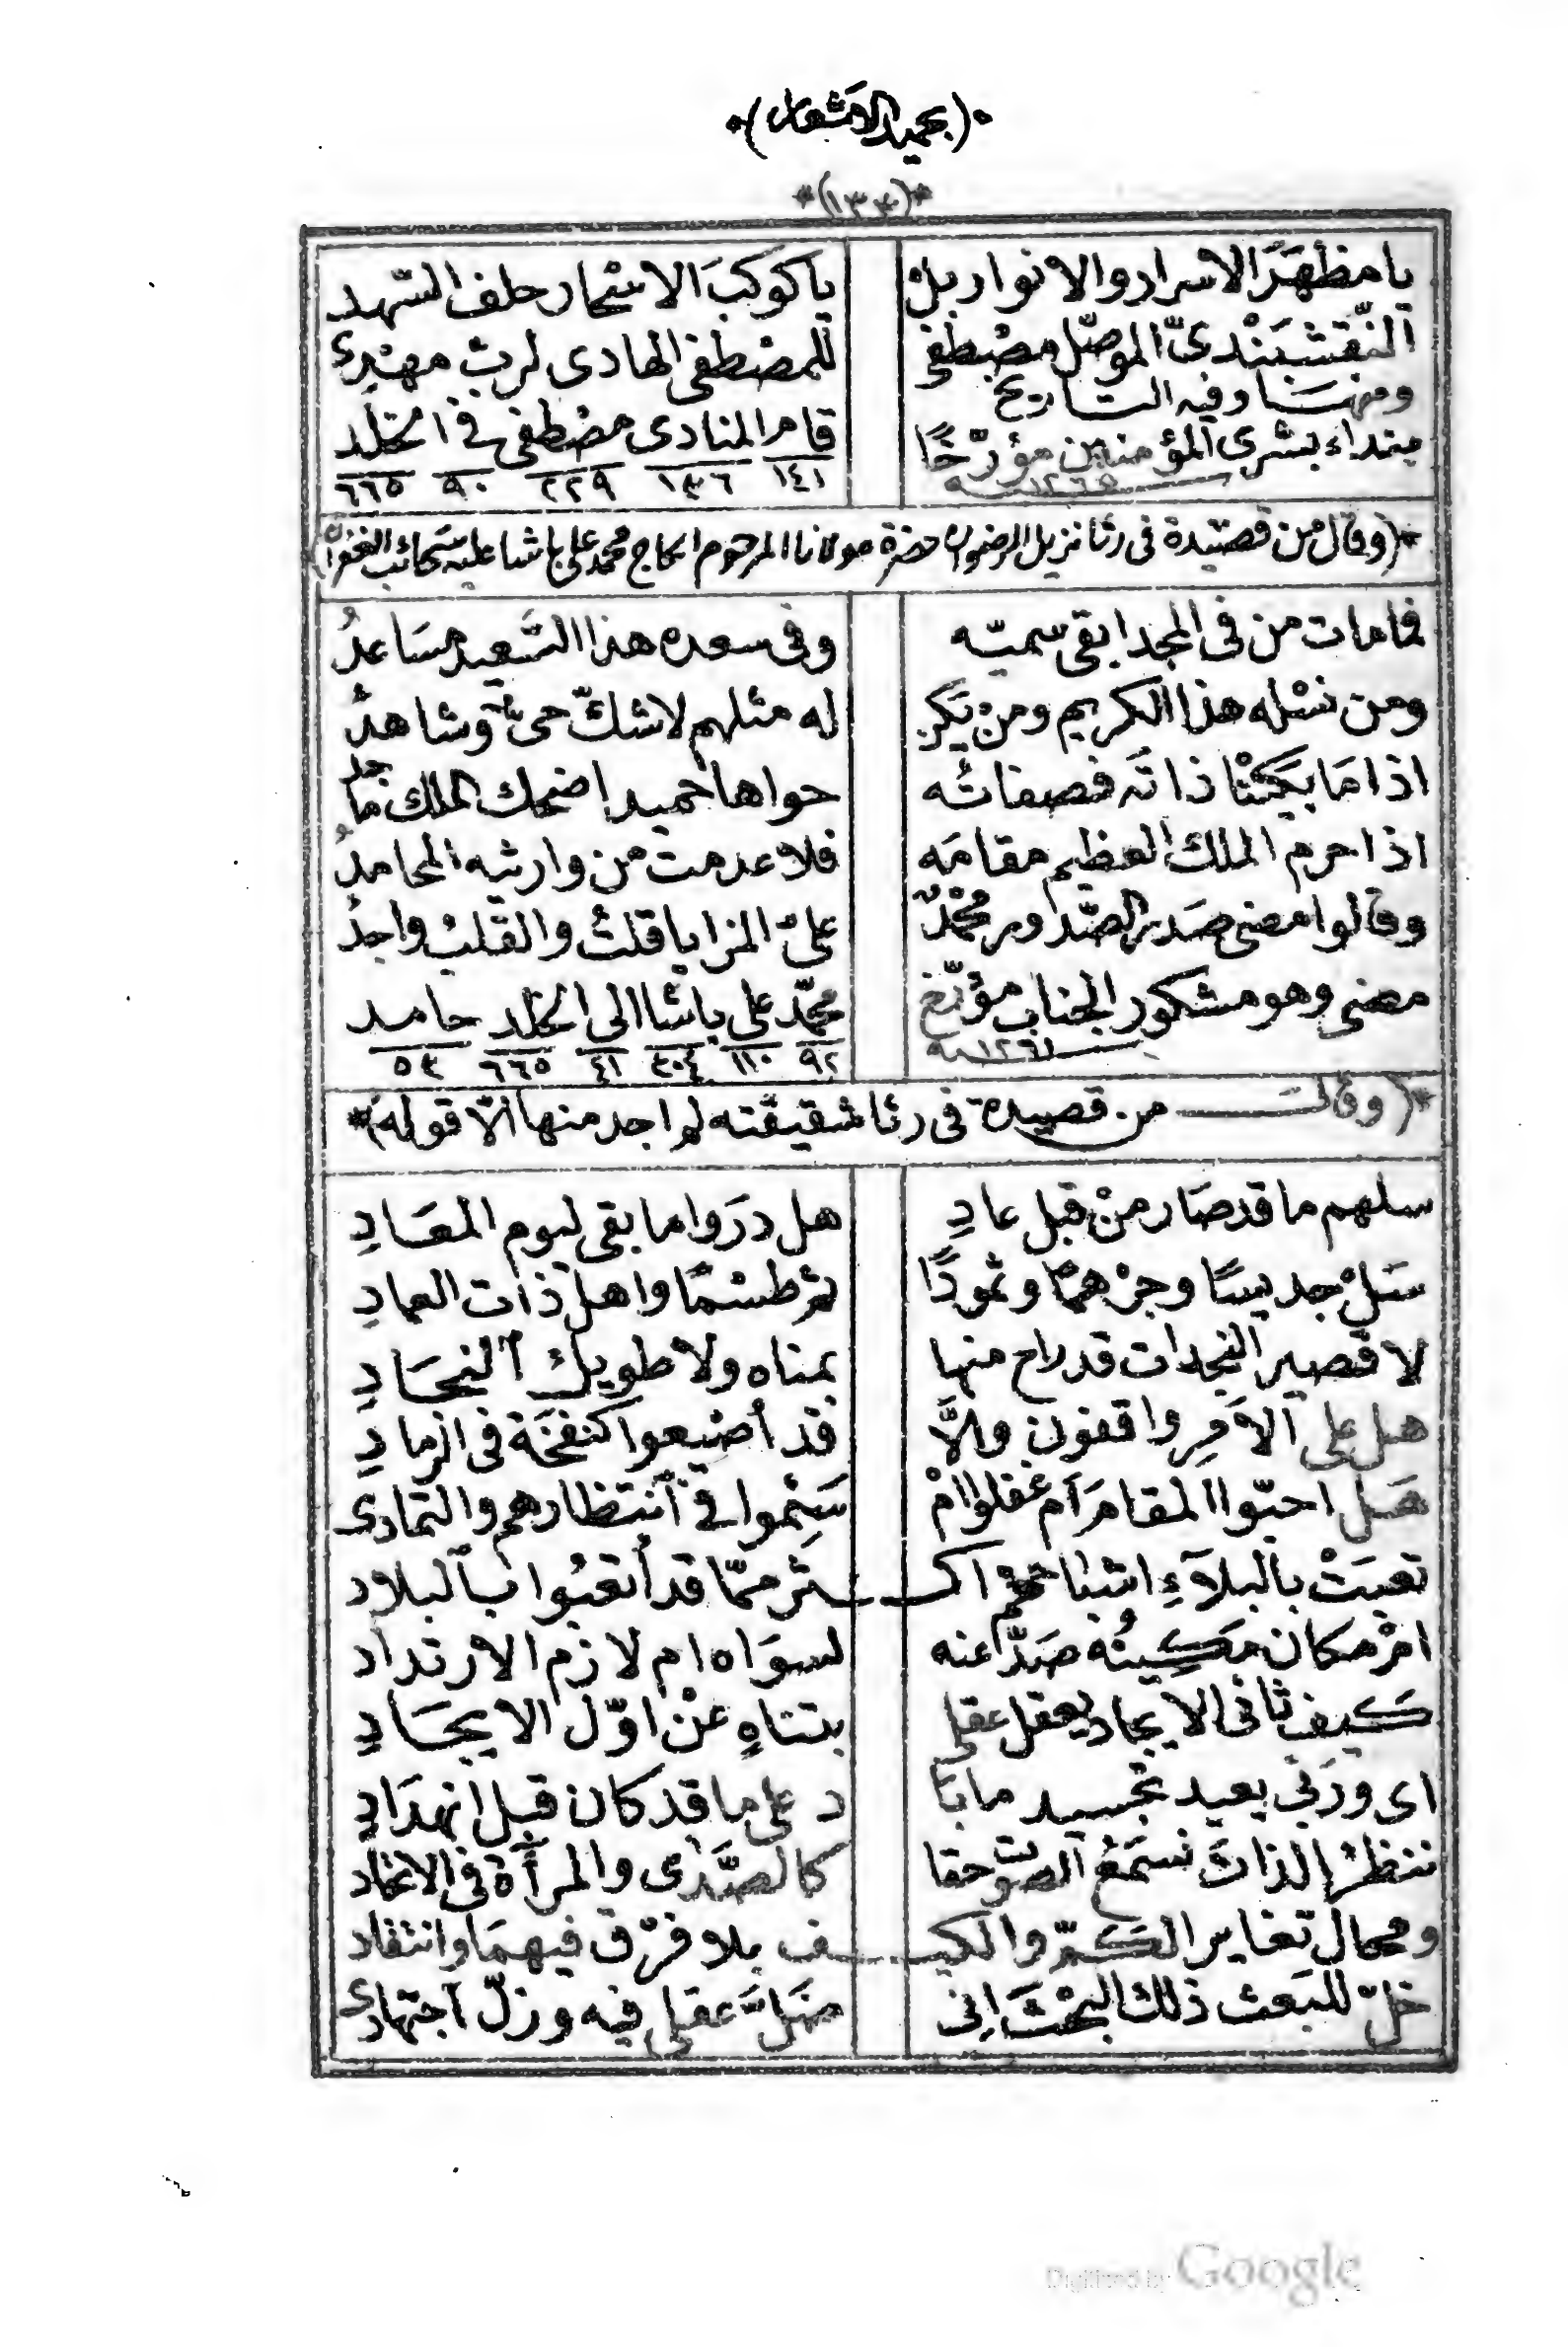 (بحميد الاشعار)
*(١٣٤)*
يا مظهَرَ الاسرار والانوار بلْ يا كوكبَ الاسْحار حلف السّهد
النّقشبَنْدىّ الموصّل مصْطفى للمصْطفى الهادى لربّ مهْدِى
ومنها وفيه التاريخ
بنداء بشرى المؤمنين مؤرّخًا قام المنادى مصْطفى فى الخلد
١٢٦٥ ١٤١ ١٣٦ ٢٢٩ ٩٠ ٦٦٥
*(وقال من قصيدة فى رثا نزيل الرضوان حضرة مولانا المرحوم الحاج محمد على باشا عليه سحائب الغفران)
فما مات من فى المجد ابقى سميّه وفى سعده هذا السَّعيد مسَاعدُ
ومن نسْله هذا الكريم ومنْ يَكن له مثلهم لا شكّ حىٌّ وشاهدُ
اذا مَا بكيْنا ذاتَه فصفاتُه حواها حميدا ضحك الملك ماجد
اذا حرم الملك العظيم مقامَه فلا عدمت من وارثيه المحامدُ
وقالوا مضى صَدر الصّدور محمّدٌ علىّ المزايا قلتُ والقلبُ واجدُ
مضى وهو مشكور الجناب مؤرّخ محمّد على باشا الى الخلد حامد
١٢٦١ ٩٢ ١١٠ ٣٠٤ ٤١ ٦٦٥ ٥٣
*(وقال من قصيدة فى رثا شقيقته لم اجد منها الّا قوله)*
سلهم ما قد صَار منْ قبل عادِ هل درَوا ما بقى ليوم المعَادِ
سَلْ جديسًا وجرْهمًا وثمودًا ثم طسْمًا واهل ذات العمادِ
لا قصير النجدات قد راح منها بمناه ولا طويل النجَادِ
هل على الاَمرِ واقفون والَّا قد أضيعوا كنفخَة فى الرمادِ
هَل احبّوا المقامَ أم غفلوا امْ سَئِموا فى أنتظارهم والتمادى
تعبَتْ بالبلآءِ اكـثر ممّا قد أتعبُوا بالبلاد
امْ مكان مَكينُه صَدَّ عنه لسوَاه ام لازم الارتداد
كَيف ثانى الايجاد يعقل عقلى بتناهٍ عنْ اوّل الايجَادِ
اى وربّى يعيد تجسيد ما بَا د على ما قد كان قبل انهدَادِ
ننظرُ الذاتَ نسمَعُ الصوت حقا كالصّدى والمرآة فى الاتحاد
ومحال تغاير الكَمّ والكيـف بلا فرْق فيهمَا وانتقاد
خلّ للبَعث ذلك البحْثَ اِنى ضَلَّ عقلى فيه وزلّ اجتهادى
Digitized by Google